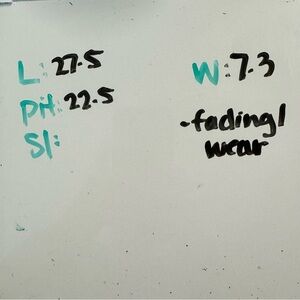 L: 27.5
W: 7.3
PH: 22.5
Sl:
-fading/
wear